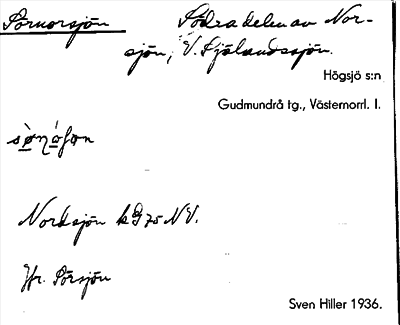 Sörnorsjön Södra delen av Nor-
sjön, V. Själandssjön.
Högsjö s:n
Gudmundrå tg., Västernorrl. l.
Nordsjön kG75NV.
Jfr. Sörsjön
Sven Hiller 1936.